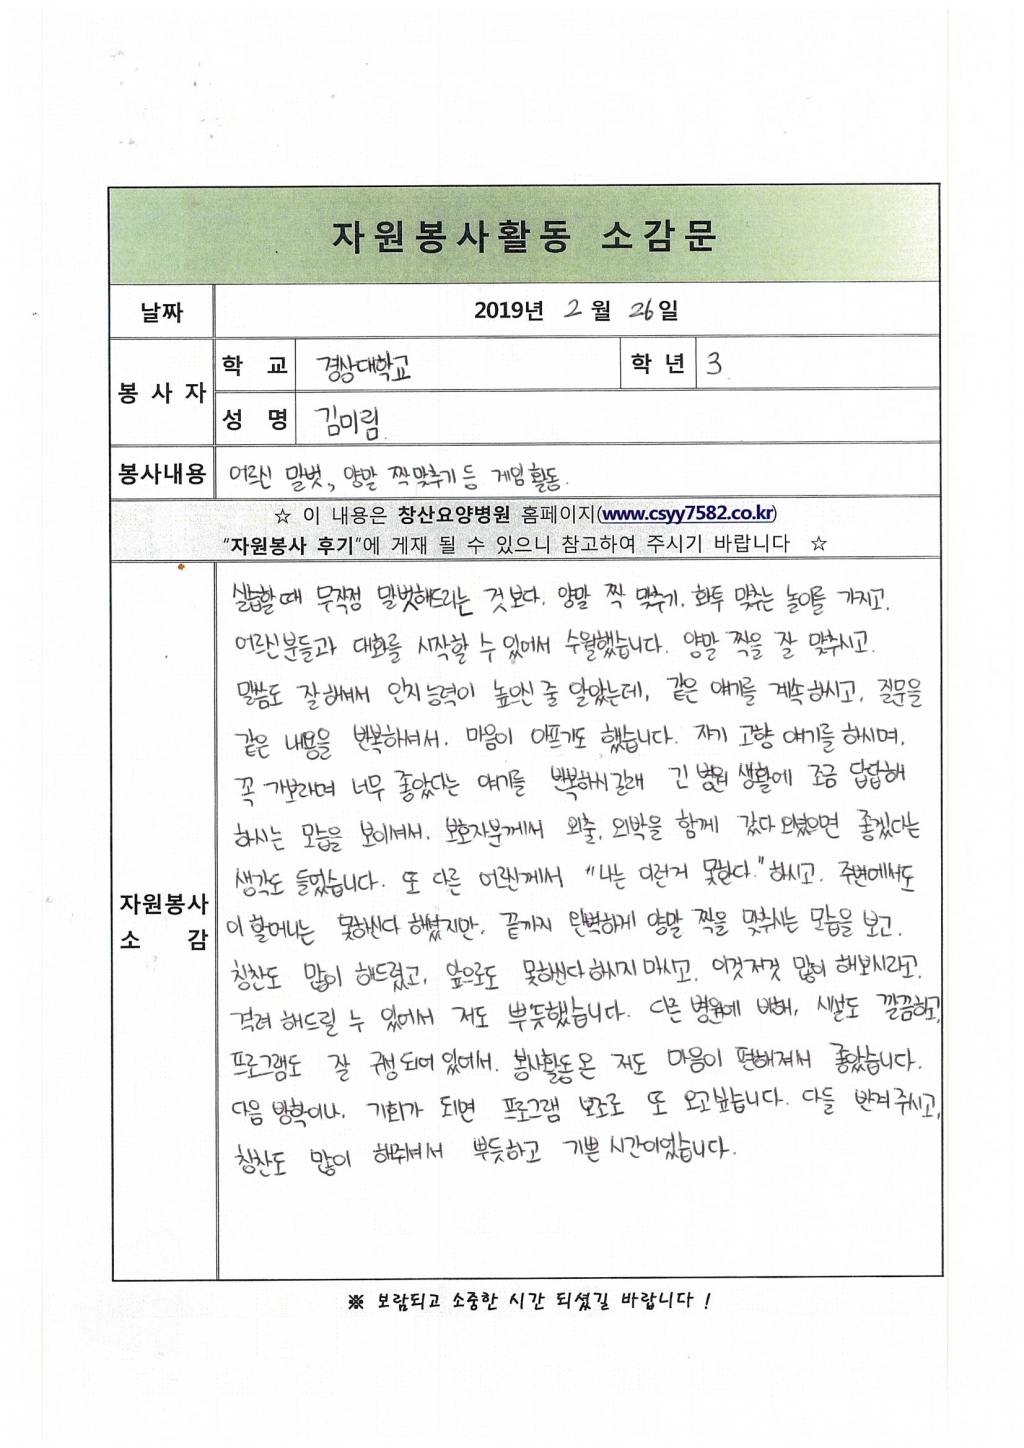 자원봉사활동 소감문
날짜 2019년 2월 26일
봉사자 학 교 경상대학교 학년 3
성 명 김미림
봉사내용 어르신 말벗, 양말 짝맞추기 등 게임활동.
☆ 이 내용은 창산요양병원 홈페이지(www.csyy7582.co.kr)
"자원봉사 후기"에 게재 될 수 있으니 참고하여 주시기 바랍니다 ☆
자원봉사 소 감
실습할때 무작정 말벗해드리는 것보다. 양말 짝 맞추기. 화투 맞추는 놀이를 가지고.
어르신분들과 대화를 시작할 수 있어서 수월했습니다. 양말 짝을 잘 맞추시고.
말씀도 잘하셔서 인지능력이 높으신 줄 알았는데, 같은 얘기를 계속하시고, 질문을
같은 내용을 반복하셔서. 마음이 아프기도 했습니다. 자기 고향 얘기를 하시며.
꼭 가보라며 너무 좋았다는 얘기를 반복하시길래 긴 병원 생활에 조금 답답해
하시는 모습을 보이셔서. 보호자분께서 외출, 외박을 함께 갔다 오셨으면 좋겠다는
생각도 들었습니다. 또 다른 어르신께서 "나는 이런거 못한다." 하시고. 주변에서도
이 할머니는 못하신다 하셨지만, 끝까지 완벽하게 양말 짝을 맞추시는 모습을 보고.
칭찬도 많이 해드렸고, 앞으로도 못하신다 하시지 마시고. 이것저것 많이 해보시라고.
격려 해드릴 수 있어서 저도 뿌듯했습니다. 다른 병원에 비해, 시설도 깔끔하고,
프로그램도 잘 구성되어 있어서. 봉사활동온 저도 마음이 편해져서 좋았습니다.
다음 방학이나. 기회가 되면 프로그램 보조로 또 오고싶습니다. 다들 반겨주시고,
칭찬도 많이 해주셔서 뿌듯하고 기쁜 시간이었습니다.
※ 보람되고 소중한 시간 되셨길 바랍니다 !